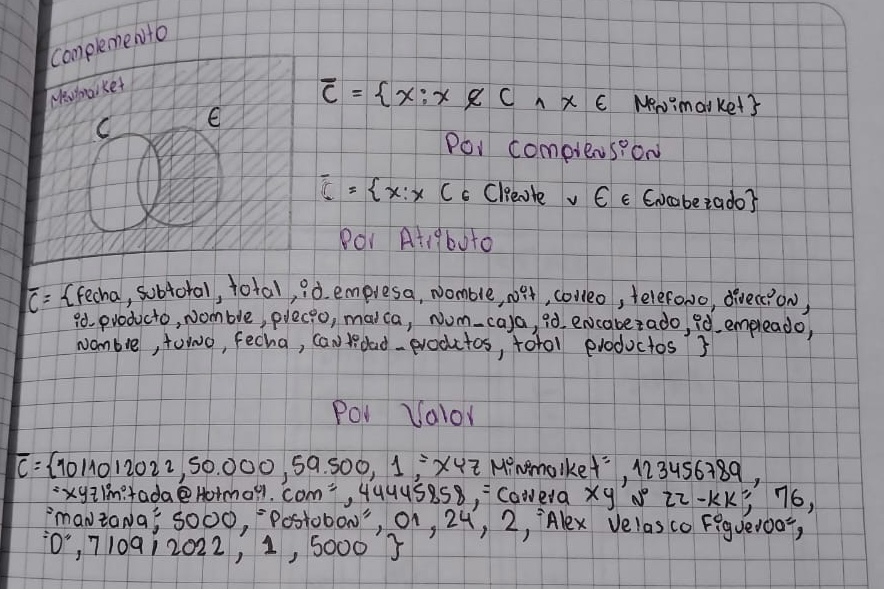 Complemento
Minimarket
C E
C̅ = {x:x ∉ C ∧ x ∈ Minimarket}
Por Comprension
C̅ = {x:x C ∈ Cliente ∨ E ∈ Encabezado}
Por Atributo
C̅ = {fecha, subtotal, total, id_empresa, nombre, nit, correo, telefono, direccion,
id_producto, nombre, precio, marca, num_caja, id_encabezado, id_empleado,
nombre, turno, fecha, cantidad_productos, total productos }
Por Valor
C̅ = {10/10/2022, 50.000, 59.500, 1, "XYZ Minimarket", 123456789,
"xyzlimitada@Hotmail.com", 44445858, "Carrera xy N° 22-KK", 76,
"manzana", 5000, "Postobon", 01, 24, 2, "Alex Velasco Figueroa",
"D", 7/09/2022, 1, 5000 }